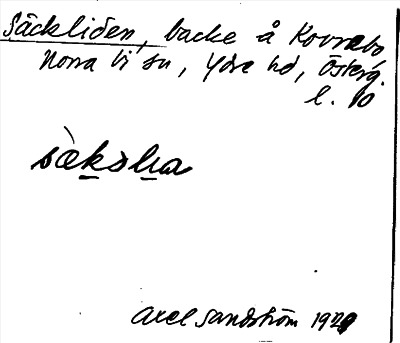 Säckliden, backe å Korrebo,
Norra Vi sn, Ydre hd, Österg.
l. 10
sækslia
Axel Sandström 1929